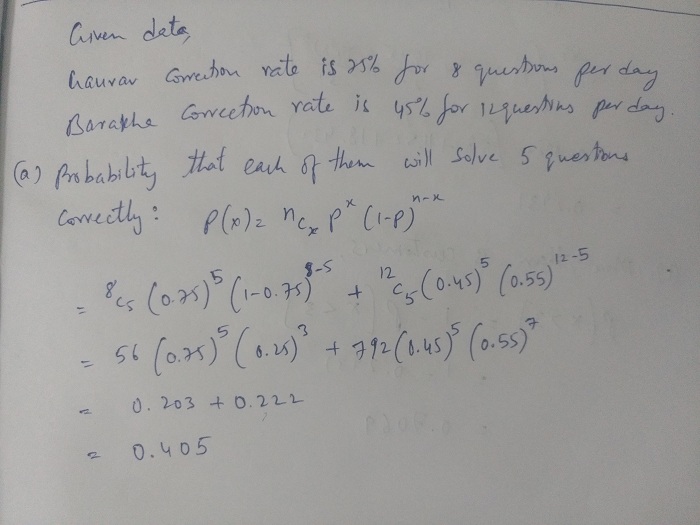 Given data,
Gaurav Correction rate is 75% for 8 questions per day
Barakha Correction rate is 45% for 12 questions per day.
(a) Probability that each of them will solve 5 questions
Correctly: P(x) = nCₓ pˣ (1-p)ⁿ⁻ˣ
= ⁸C₅ (0.75)⁵ (1-0.75)⁸⁻⁵ + ¹²C₅ (0.45)⁵ (0.55)¹²⁻⁵
= 56 (0.75)⁵ (0.25)³ + 792 (0.45)⁵ (0.55)⁷
= 0.203 + 0.222
= 0.405